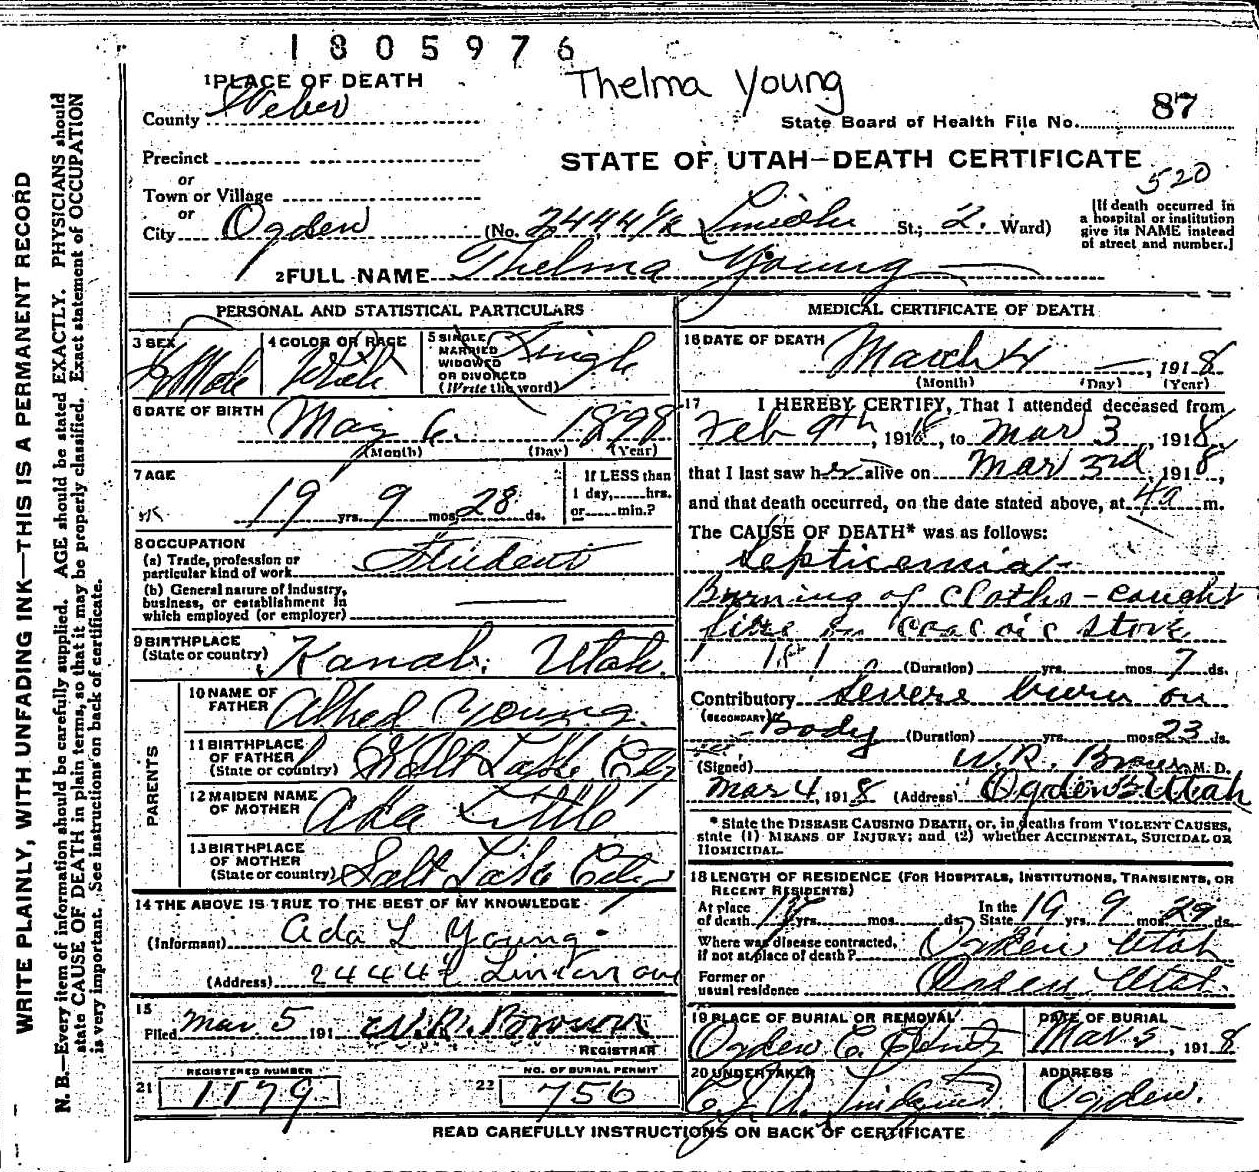 1805976
Thelma Young
1 PLACE OF DEATH
County Weber
State Board of Health File No. 87
Precinct
or
Town or Village
or
City Ogden
STATE OF UTAH—DEATH CERTIFICATE
520
(No. 2444½ St.; 2. Ward)
[If death occurred in
a hospital or institution
give its NAME instead
of street and number.]
2 FULL NAME Thelma Young
PERSONAL AND STATISTICAL PARTICULARS
3 SEX
4 COLOR OR RACE
White
5 SINGLE
MARRIED
WIDOWED
OR DIVORCED
(Write the word)
Single
6 DATE OF BIRTH
May 6. 1898
(Month) (Day) (Year)
7 AGE
19 yrs. 9 mos. 28 ds.
If LESS than
1 day,......hrs.
or......min.?
8 OCCUPATION
(a) Trade, profession or
particular kind of work Student
(b) General nature of industry,
business, or establishment in
which employed (or employer)
9 BIRTHPLACE
(State or country) Kanab, Utah.
PARENTS
10 NAME OF
FATHER Alfred Young.
11 BIRTHPLACE
OF FATHER
(State or country) Salt Lake City
12 MAIDEN NAME
OF MOTHER Ada Little
13 BIRTHPLACE
OF MOTHER
(State or country) Salt Lake City
14 THE ABOVE IS TRUE TO THE BEST OF MY KNOWLEDGE
(Informant) Ada L Young
(Address) 2444½ Linden ave
15
Filed Mar 5 191
REGISTRAR
REGISTERED NUMBER
21 1179
NO. OF BURIAL PERMIT
22 756
MEDICAL CERTIFICATE OF DEATH
16 DATE OF DEATH
March 4, 1918
(Month) (Day) (Year)
17 I HEREBY CERTIFY, That I attended deceased from
Feb 9th, 1918, to Mar 3, 1918,
that I last saw her alive on Mar 3rd, 1918,
and that death occurred, on the date stated above, at 4a m.
The CAUSE OF DEATH* was as follows:
Septicemia-
Burning of cloths - caught
fire on coal oil stove
(Duration) yrs. mos. 7 ds.
Contributory Severe burn on
(SECONDARY) Body (Duration) yrs. mos. 23 ds.
(Signed) W. R. M. D.
Mar 4, 1918 (Address) Ogden Utah
* State the DISEASE CAUSING DEATH, or, in deaths from VIOLENT CAUSES,
state (1) MEANS OF INJURY; and (2) whether ACCIDENTAL, SUICIDAL OR
HOMICIDAL.
18 LENGTH OF RESIDENCE (FOR HOSPITALS, INSTITUTIONS, TRANSIENTS, OR
RECENT RESIDENTS)
At place
of death yrs. mos. ds.
In the
State 19 yrs. 9 mos. 29 ds.
Where was disease contracted,
if not at place of death? Ogden Utah
Former or
usual residence Ogden Utah.
19 PLACE OF BURIAL OR REMOVAL
Ogden C.
DATE OF BURIAL
Mar 5, 1918
20 UNDERTAKER
ADDRESS
Ogden.
READ CAREFULLY INSTRUCTIONS ON BACK OF CERTIFICATE
WRITE PLAINLY, WITH UNFADING INK—THIS IS A PERMANENT RECORD
N. B.—Every item of information should be carefully supplied. AGE should be stated EXACTLY. PHYSICIANS should
state CAUSE OF DEATH in plain terms, so that it may be properly classified. Exact statement of OCCUPATION
is very important. See instructions on back of certificate.